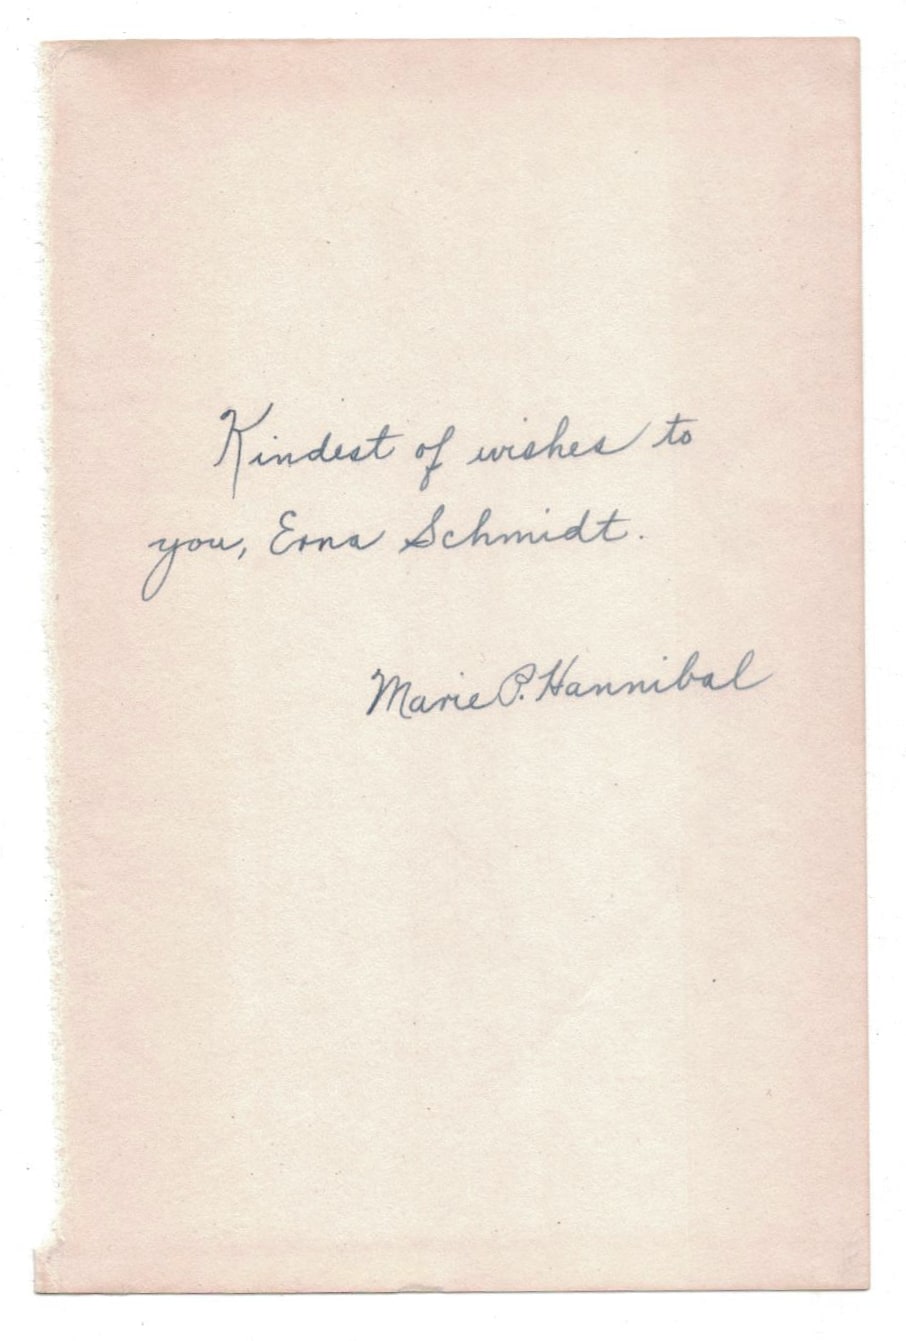 Kindest of wishes to
you, Erna Schmidt.
Marie P. Hannibal